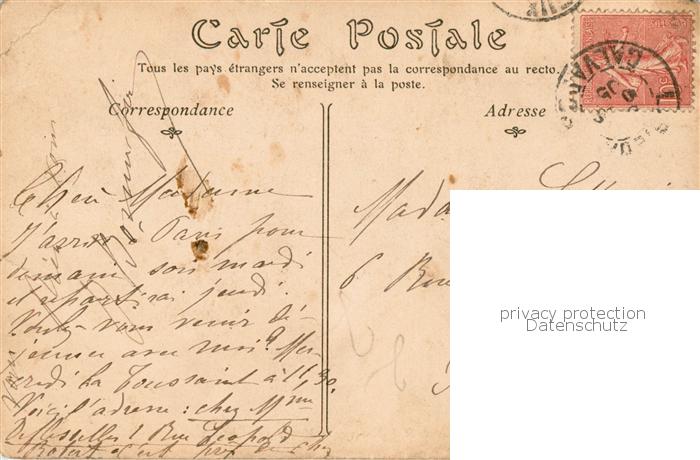 Carte Postale
Tous les pays étrangers n'acceptent pas la correspondance au recto.
Se renseigner à la poste.
Correspondance
Adresse
CALVADOS
Chère Madame
J'arrive à Paris pour
demain soir mardi
et repartirai jeudi.
Voulez-vous venir dé-
jeuner avec moi? Mer-
credi La Toussaint à 11,30.
Voici l'adresse: chez Mme
1 Rue Léopold
Robert c'est près de chez
Mada
6 Rue
privacy protection
Datenschutz